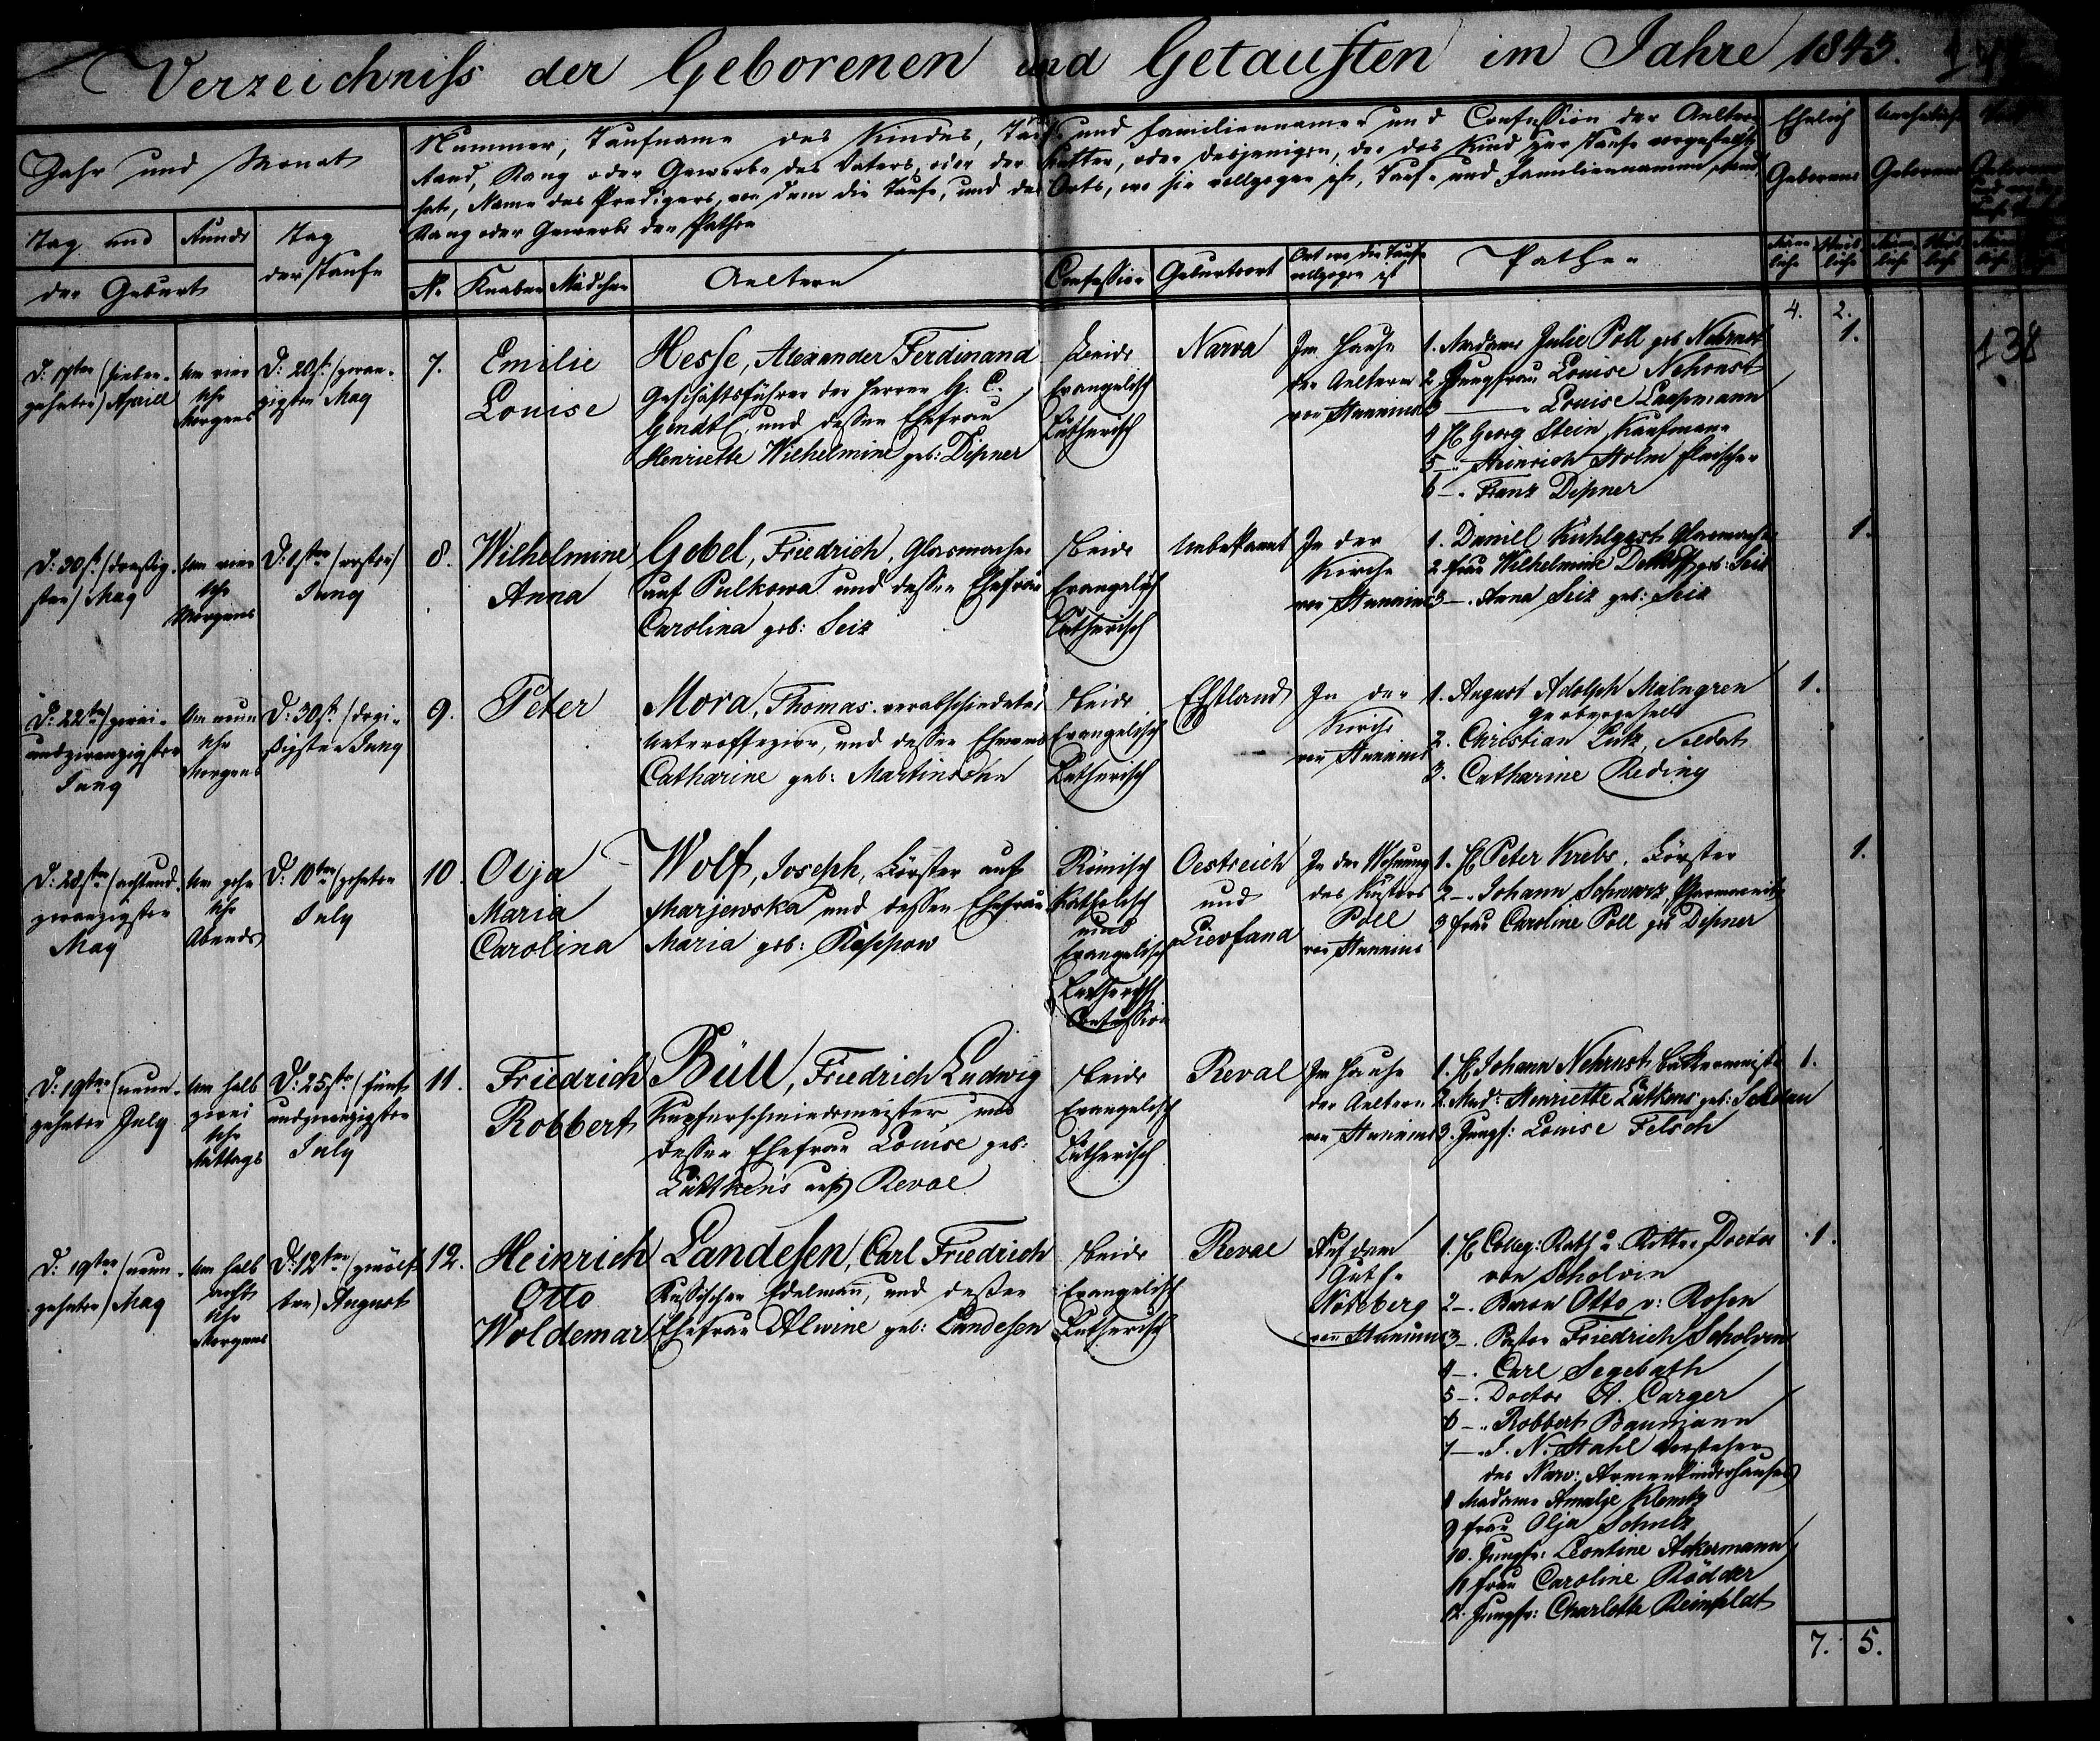 Verzeichniss der Geborenen und Getauften im Jahre 1843.
Jahr und Monat
Tag und
Stunde
der Geburt
Tag
der Taufe
Nummer, Taufname des Kindes, Tauf- und Familienname und Confession der Aeltern
Stand, Rang oder Gewerbe des Vaters, oder der Mutter, oder desjenigen, der das Kind zur Taufe vorgestellt
hat, Name des Predigers, von dem die Taufe, und des Orts, wo sie vollzogen ist, Tauf- und Familiennamen, Stand,
Rang oder Gewerbe der Pathen
No Knaben Mädchen
Aeltern
Confession
Geburtsort
Ort wo die Taufe
vollzogen ist
Pathen
Ehelich
Geborene
Unehelich
Geborene
Männ
liche
Weib
liche
4. 2.
138
D: 17ten (sieben-
zehnten) Aprill
Um vier
Uhr
Morgens
D: 20st (zwan-
zigsten May
7.
Emilie
Louise
Hesse, Alexander Ferdinand
Geschäftsführer der Herren G. C.
und dessen Ehefrau
Henriette Wilhelmine geb: Dißner
Beide
Evangelisch
Lutherisch
Narva
Im Hause
der Aeltern
von Hunnius
1. Madame Julie Poll geb
2 Jungfrau Louise
3 — Louise
4 H Georg Stein Kaufmann
5 — Heinrich Holm Fleischer
6 — Franz Dißner
1.
D: 30st (dreißig-
sten) May
Um vier
Uhr
Morgens
D: 1sten (ersten)
Juny
8.
Wilhelmine
Anna
Gebel, Friedrich, Glasmacher
auf Pulkowa und dessen Ehefrau
Carolina geb: Seiz
Beide
Evangelisch
Lutherisch
Unbekannt
In der
Kirche
von Hunnius
1. Daniel Glasmacher
2 Frau Wilhelmine geb: Seiz
3 — Anna Seiz geb: Seiz
1.
D: 22ten (zwei-
undzwanzigsten
Juny
Um neun
Uhr
Morgens
D: 30st (drei-
ßigsten Juny
9.
Peter
Mora, Thomas verabschiedeter
Unteroffizier, und dessen Eheweib
Catharine geb: Martinsohn
Beide
Evangelisch
Lutherisch
Ehstland
In der
Kirche
von Hunnius
1. August Adolph Malmgren
Gerbergesell
2. Christian Lutz, Soldat
3. Catharine Reding
1.
D: 28sten (achtund-
zwanzigsten
May
Um zehn
Uhr
Abends
D: 10ten (zehnten
July
10.
Olja
Maria
Carolina
Wolf, Joseph, Förster auf
Marjewska und dessen Ehefrau
Maria geb: Kappow
Römisch
Katholisch
und
Evangelisch
Lutherisch
Confession
Oestreich
und
In der Wohnung
des Küsters
Poll
von Hunnius
1. H Peter Krebs, Förster
2 — Johann Schwarz, Pharmaceut
3 Frau Caroline Poll geb Dißner
1.
D: 19ten (neun-
zehnten July
Um halb
zwei
Uhr
Mittags
D: 25sten (fünf
undzwanzigsten
July
11.
Friedrich
Robbert
Büll, Friedrich Ludwig
Kupferschmiedemeister und
dessen Ehefrau Louise geb:
Lüttkens aus Reval
Beide
Evangelisch
Lutherisch
Reval
Im Hause
der Aeltern
von Hunnius
1. H Johann Nehrust
2. Mad: Henriette Lütkens geb:
3. Jungf: Louise Felsch
1.
D: 19ten (neun-
zehnten) May
Um halb
acht
Uhr
Morgens
D: 12ten (zwölf-
ten) August
12.
Heinrich
Otto
Woldemar
Landesen, Carl Friedrich
Russischer Edelmann, und dessen
Ehefrau Alwine geb: Landesen
Beide
Evangelisch
Lutherisch
Reval
Auf dem
Guthe
von Hunnius
1. H Colleg: Rath u Ritter Doctor
von Scholvin
2 — Baron Otto v: Rosen
3 — Pastor Friedrich Scholvin
4 — Carl Segebath
5 — Doctor A. Carger
6 — Robbert Baumann
7 — Stahl Vorsteher
des Narv: Armenkinderhauses
8 Madame Amalje
9 Frau Olja Schulz
10. Jungfr: Leontine Ackermann
11 Frau Caroline Rödder
12. Jungfr: Charlotte Reinfeldt
1.
7. 5.